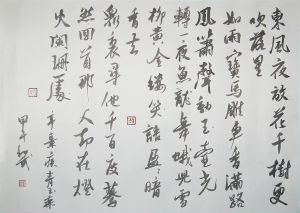 東風夜放花千樹更
吹落星
如雨寶馬雕車香滿路
鳳簫聲動玉壺光
轉一夜魚龍舞蛾兒雪
柳黃金縷笑語盈盈暗
香去
眾裏尋他千百度驀
然回首那人却在燈
火闌珊處
辛棄疾青玉案
甲午